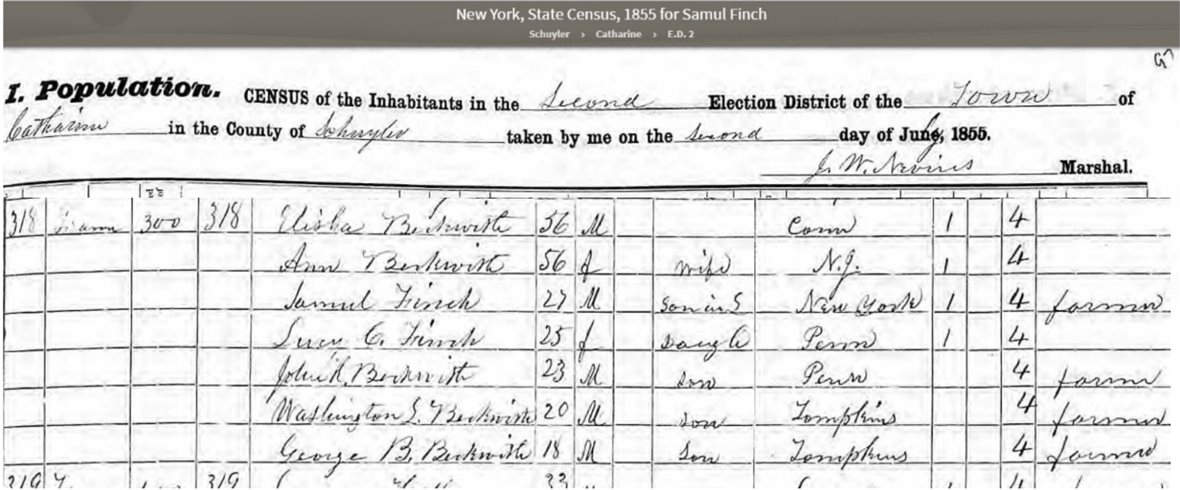 New York, State Census, 1855 for Samul Finch
Schuyler > Catharine > E.D. 2
97
I. Population. CENSUS of the Inhabitants in the Second Election District of the Town of
Catharine in the County of Schuyler taken by me on the Second day of June, 1855.
J. W. Nevins Marshal.
318 Frame 300 318 Elisha Beckwith 56 M Conn 1 4
Ann Beckwith 56 f wife N.J. 1 4
Samul Finch 27 M Son in L New York 1 4 farmer
Lucy C. Finch 25 f Daugh Penn 1 4
John K. Beckwith 23 M Son Penn 4 farmer
Washington S. Beckwith 20 M Son Tompkins 4 farmer
George B. Beckwith 18 M Son Tompkins 4 farmer
319 319 33 4